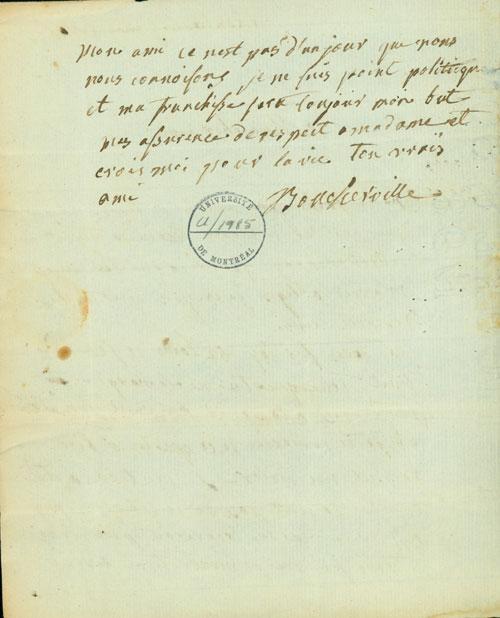 mon ami ce nest pas d'un jour que nous
nous connoisons, je ne suis point politique
et ma franchise sera toujour mon but
mes assurence de respect a madame et
crois moi pour la vie ton vrais
ami Boucherville
UNIVERSITÉ
U/1985
DE MONTRÉAL